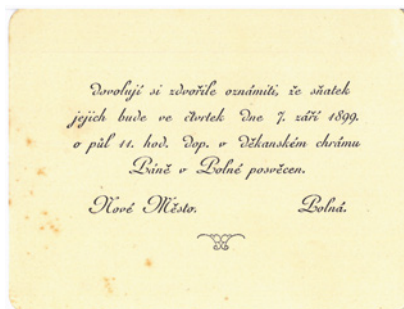 dovolují si zdvořile oznámiti, že sňatek
jejich bude ve čtvrtek dne 7. září 1899.
o půl 11. hod. dop. v děkanském chrámu
Páně v Polné posvěcen.
Nové Město. Polná.